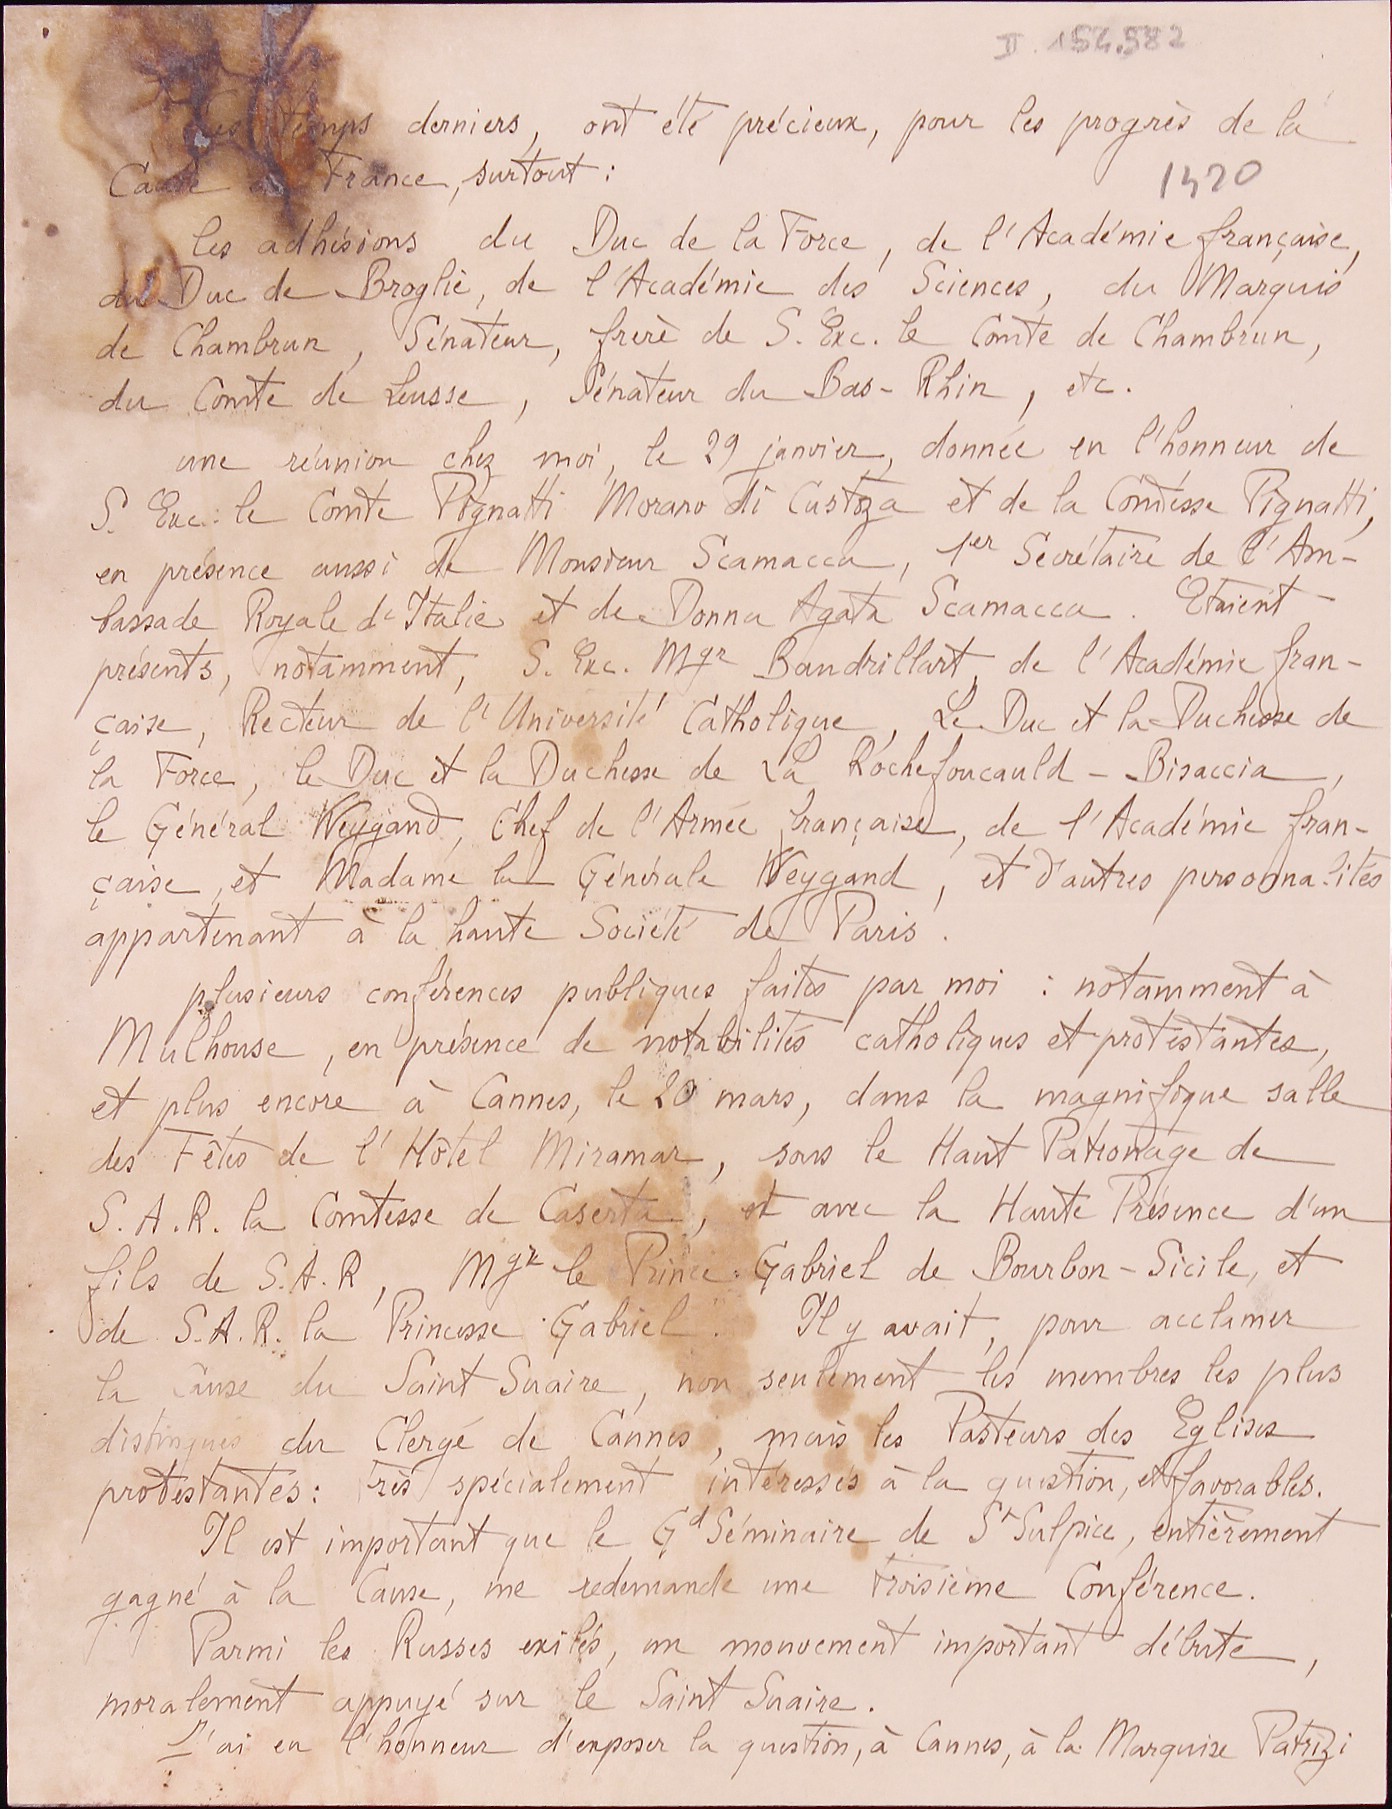 II. 154.582
Ces temps derniers, ont été précieux, pour les progrès de la
Cause en France, surtout :
1420
les adhésions du Duc de la Force, de l'Académie française,
du Duc de Broglie, de l'Académie des Sciences, du Marquis
de Chambrun, Sénateur, frère de S. Exc. le Comte de Chambrun,
du Comte de Leusse, Sénateur du Bas-Rhin, etc.
une réunion chez moi, le 29 janvier, donnée en l'honneur de
S. Exc. le Comte Pignatti Morano di Custoza et de la Comtesse Pignatti,
en présence aussi de Monsieur Scamacca, 1er Secrétaire de l'Am-
bassade Royale d'Italie et de Donna Agata Scamacca. Etaient
présents, notamment, S. Exc. Mgr Baudrillart, de l'Académie fran-
çaise, Recteur de l'Université Catholique, Le Duc et la Duchesse de
la Force, le Duc et la Duchesse de La Rochefoucauld - Bisaccia,
le Général Weygand, Chef de l'Armée française, de l'Académie fran-
çaise, et Madame la Générale Weygand, et d'autres personnalités
appartenant à la haute Société de Paris.
plusieurs conférences publiques faites par moi : notamment à
Mulhouse, en présence de notabilités catholiques et protestantes,
et plus encore à Cannes, le 20 mars, dans la magnifique salle
des Fêtes de l'Hôtel Miramar, sous le Haut Patronage de
S. A. R. la Comtesse de Caserta, et avec la Haute Présence d'un
fils de S. A. R, Mgr le Prince Gabriel de Bourbon-Sicile, et
de S. A. R. la Princesse Gabriel. Il y avait, pour acclamer
la Cause du Saint Suaire, non seulement les membres les plus
distingués du Clergé de Cannes, mais les Pasteurs des Eglises
protestantes : très spécialement intéressés à la question, et favorables.
Il est important que le Gd Séminaire de St Sulpice, entièrement
gagné à la Cause, me redemande une troisième Conférence.
Parmi les Russes exilés, un mouvement important débute,
moralement appuyé sur le Saint Suaire.
J'ai eu l'honneur d'exposer la question, à Cannes, à la Marquise Patrizi